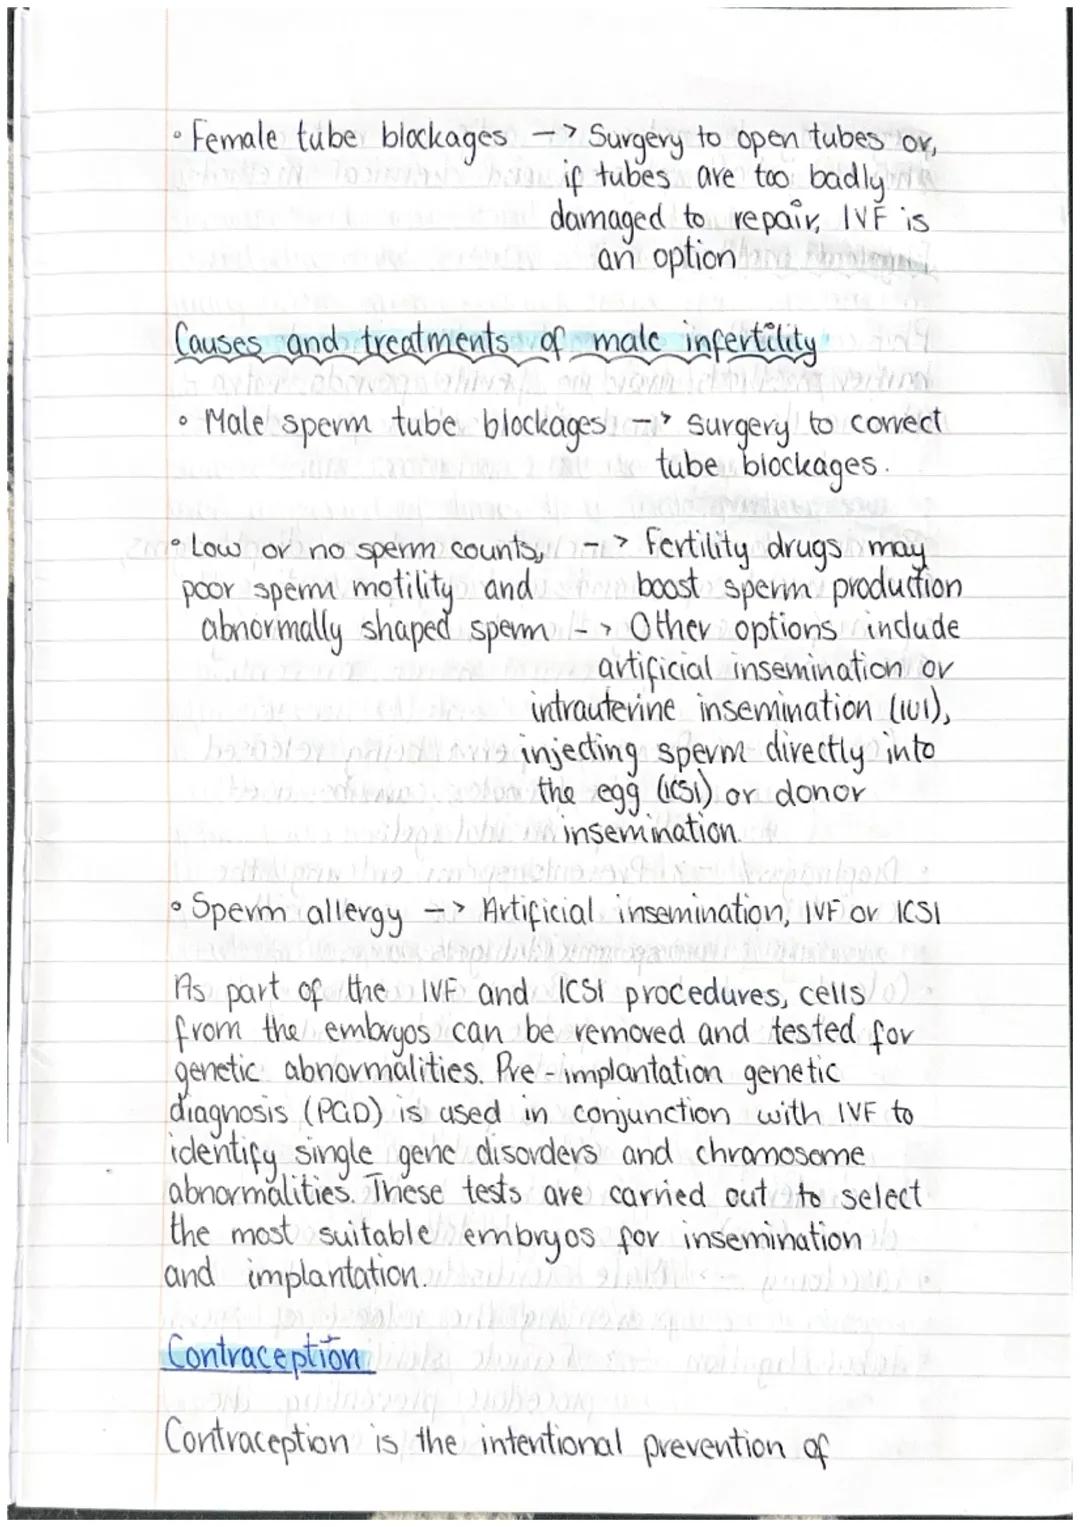 • Female tube blockages -> Surgery to open tubes or,
if tubes are too badly
damaged to repair, IVF is
an option
Causes and treatments of male infertility
• Male sperm tube blockages -> Surgery to correct
tube blockages.
• Low or no sperm counts, -> Fertility drugs may
poor sperm motility and boost sperm production
abnormally shaped sperm -> Other options include
artificial insemination or
intrauterine insemination (IUI),
injecting sperm directly into
the egg (ICSI) or donor
insemination.
• Sperm allergy -> Artificial insemination, IVF or ICSI
As part of the IVF and ICSI procedures, cells
from the embryos can be removed and tested for
genetic abnormalities. Pre-implantation genetic
diagnosis (PGD) is used in conjunction with IVF to
identify single gene disorders and chromosome
abnormalities. These tests are carried out to select
the most suitable embryos for insemination
and implantation.
Contraception
Contraception is the intentional prevention of